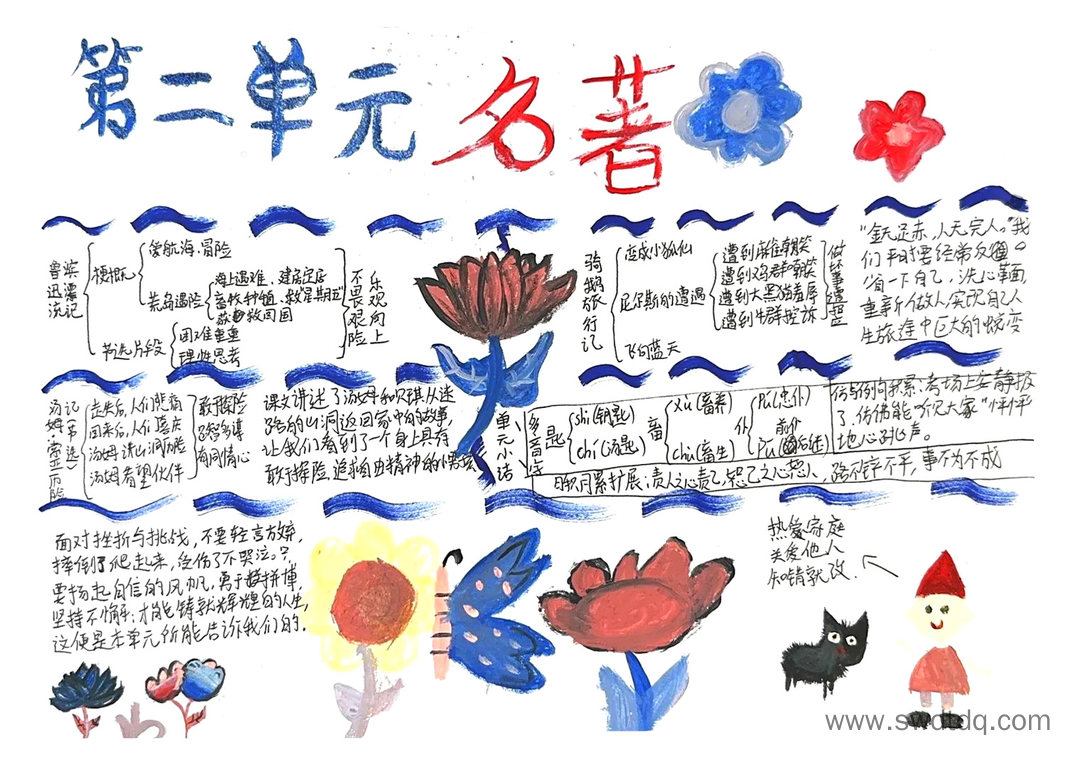 第二单元 名著
鲁滨逊漂流记
梗概
爱航海、冒险
荒岛遇险
海上遇难、建房定居
畜牧种植、救"星期五"
获救回国
节选片段
困难重重
理性思考
不畏艰险
乐观向上
骑鹅旅行记
变成小狐仙
尼尔斯的遭遇
遭到麻雀嘲笑
遭到鸡群嘲笑
遭到大黑猫羞辱
遭到牛群控诉
做坏事遭报应
飞向蓝天
"金无足赤,人无完人。"我
们平时要经常反
省一下自己,洗心革面,
重新做人实现自己人
生旅途中巨大的蜕变
汤姆·索亚历险记(节选)
走失后,人们悲痛
回来后,人们喜庆
汤姆讲山洞历险
汤姆看望伙伴
敢于探险
足智多谋
有同情心
课文讲述了汤姆和贝琪从迷
路的山洞返回家中的故事,
让我们看到了一个身上具有
敢于探险、追求自由精神的
单元小结
多音字
匙
shi(钥匙)
chí(汤匙)
畜
xù(畜养)
chù(畜生)
仆
pú(忠仆)
pū(前仆后继)
仿写例句积累:考场上安静极
了,仿佛能听见大家"怦怦"
地心跳声。
日积月累扩展:责人之心责己,恕己之心恕人、路不铲不平,事不为不成
面对挫折与挑战,不要轻言放弃,
摔倒了爬起来,受伤了不哭泣。
要扬起自信的风帆,勇于拼搏,
坚持不懈;才能铸就辉煌的人生,
这便是本单元所能告诉我们的.
热爱家庭
关爱他人
知错就改.
www.swdtdq.com